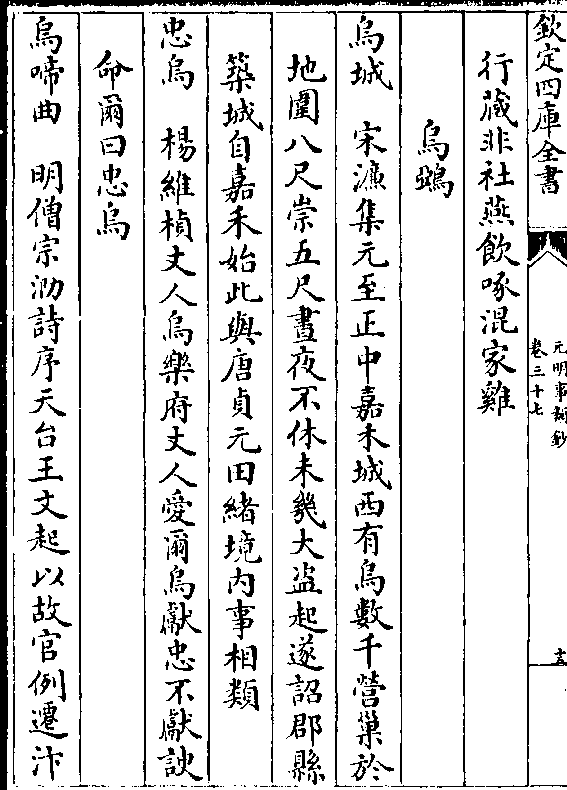 欽定四庫全書
元明事類鈔
卷三十七
行藏非社燕飲啄混家雞
烏鵶
烏城　宋濂集元至正中嘉禾城西有烏數千營巢於
地圍八尺崇五尺晝夜不休未幾大盗起遂詔郡縣
築城自嘉禾始此與唐貞元田緒境内事相類
忠烏　楊維楨丈人烏樂府丈人愛爾烏獻忠不獻諛
命爾曰忠烏
烏啼曲　明僧宗泐詩序天台王文起以故官例遷汴